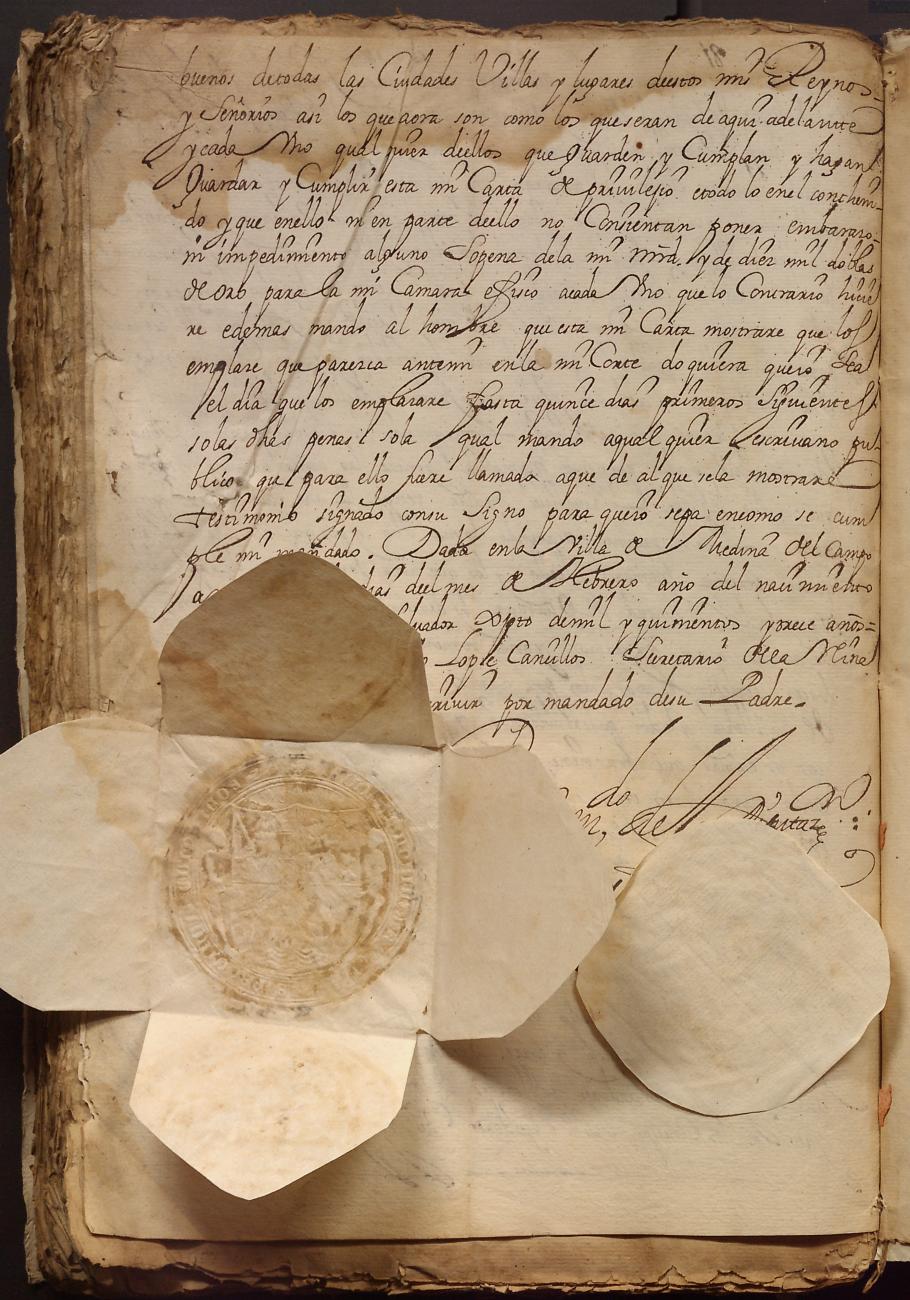 buenos detodas las Ciudades Villas y lugares deestos mis Reynos=
y Señorios asi los que aora son como los que seran de aqui adelante
y cada Uno qualquier deellos que Guarden y Cumplan y hagan
Guardar y Cumplir esta mi Carta de privilejio etodo lo enel conthení
do y que enello ni en parte deello no Consientan poner embarazo
ni impedimento alguno Sopena dela mi mrd. y de diez mil doblas
de oro para la mi Camara efisco acada Uno que lo Contrario hicie
re edemas mando al hombre que esta mi Carta mostrare que los
emplaze que parezca antemi enla mi Corte doquiera queio Sea
el dia que los emplazare hasta quince dias primeros Siguientes
solas dhas penas sola qual mando aqualquier escrivano pu
blico que para ello fuere llamado aque de alque sela mostrare
testimonio signado consu Signo para queio sepa encomo se cum
ple mi mandado. Dada enla Villa de Medina del Campo
a dias deel mes de Febrero año del nacimiento
vador Xpto demil y quinientos y trece años=
Lope Concillos Secretario dela Reina
rivir por mandado desu Padre.
do